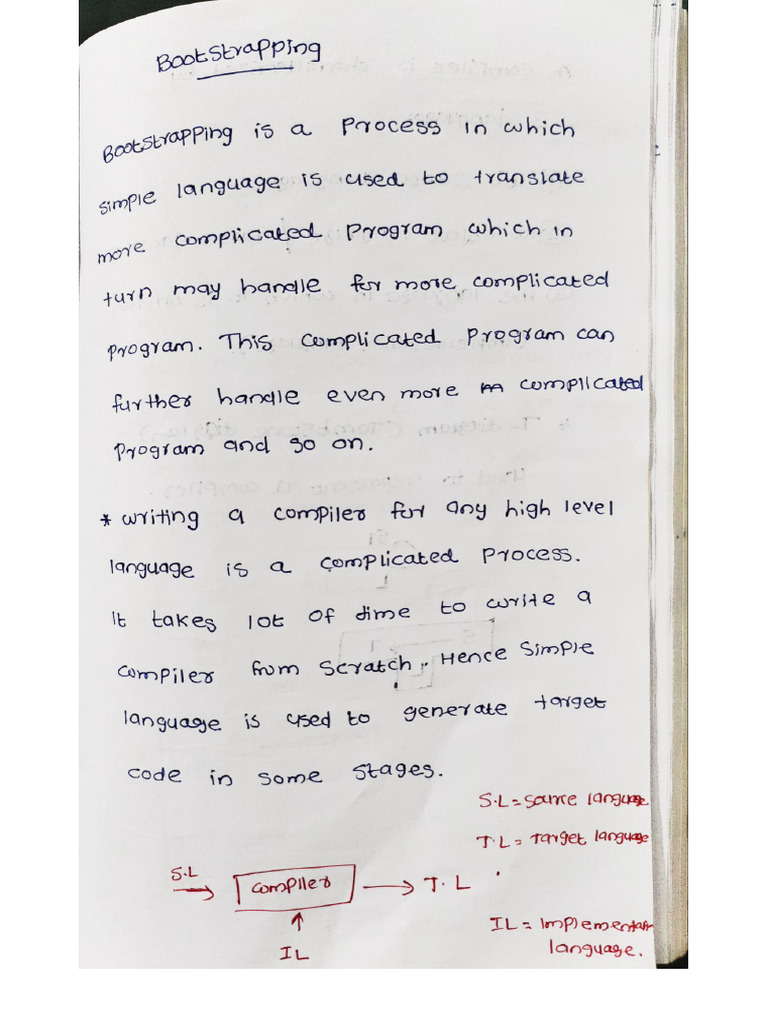 Bootstrapping
Bootstrapping is a process in which
simple language is used to translate
more complicated program which in
turn may handle for more complicated
program. This complicated program can
further handle even more complicated
program and so on.
* writing a compiler for any high level
language is a complicated process.
It takes lot of time to write a
compiler from scratch. Hence simple
language is used to generate target
code in some stages.
S.L = source language
T.L = Target language
S.L
compiler
T.L
IL = Implementatn
language.
IL